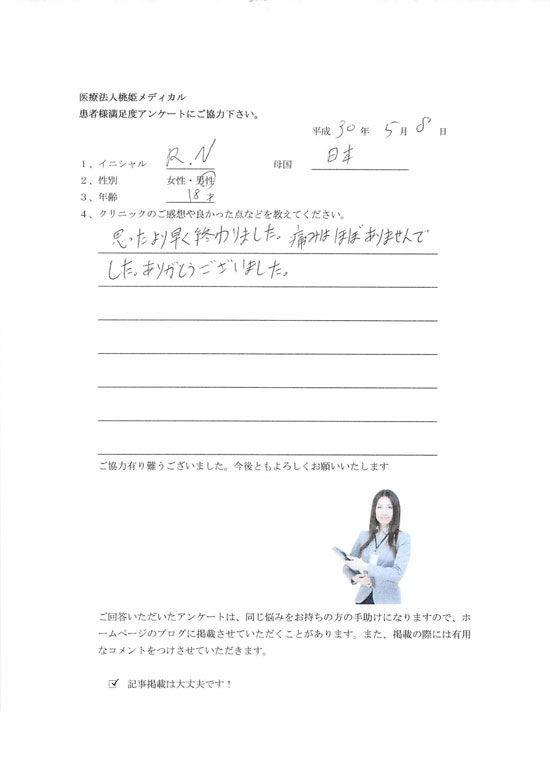 医療法人桃姫メディカル
患者様満足度アンケートにご協力下さい。
平成 30 年 5 月 8 日
1、イニシャル R.N 母国 日本
2、性別 女性・男性
3、年齢 18才
4、クリニックのご感想や良かった点などを教えてください。
思ったより早く終わりました。痛みはほぼありませんで
した。ありがとうございました。
ご協力有り難うございました。今後ともよろしくお願いいたします
ご回答いただいたアンケートは、同じ悩みをお持ちの方の手助けになりますので、ホ
ームページのブログに掲載させていただくことがあります。また、掲載の際には有用
なコメントをつけさせていただきます。
☑ 記事掲載は大丈夫です！